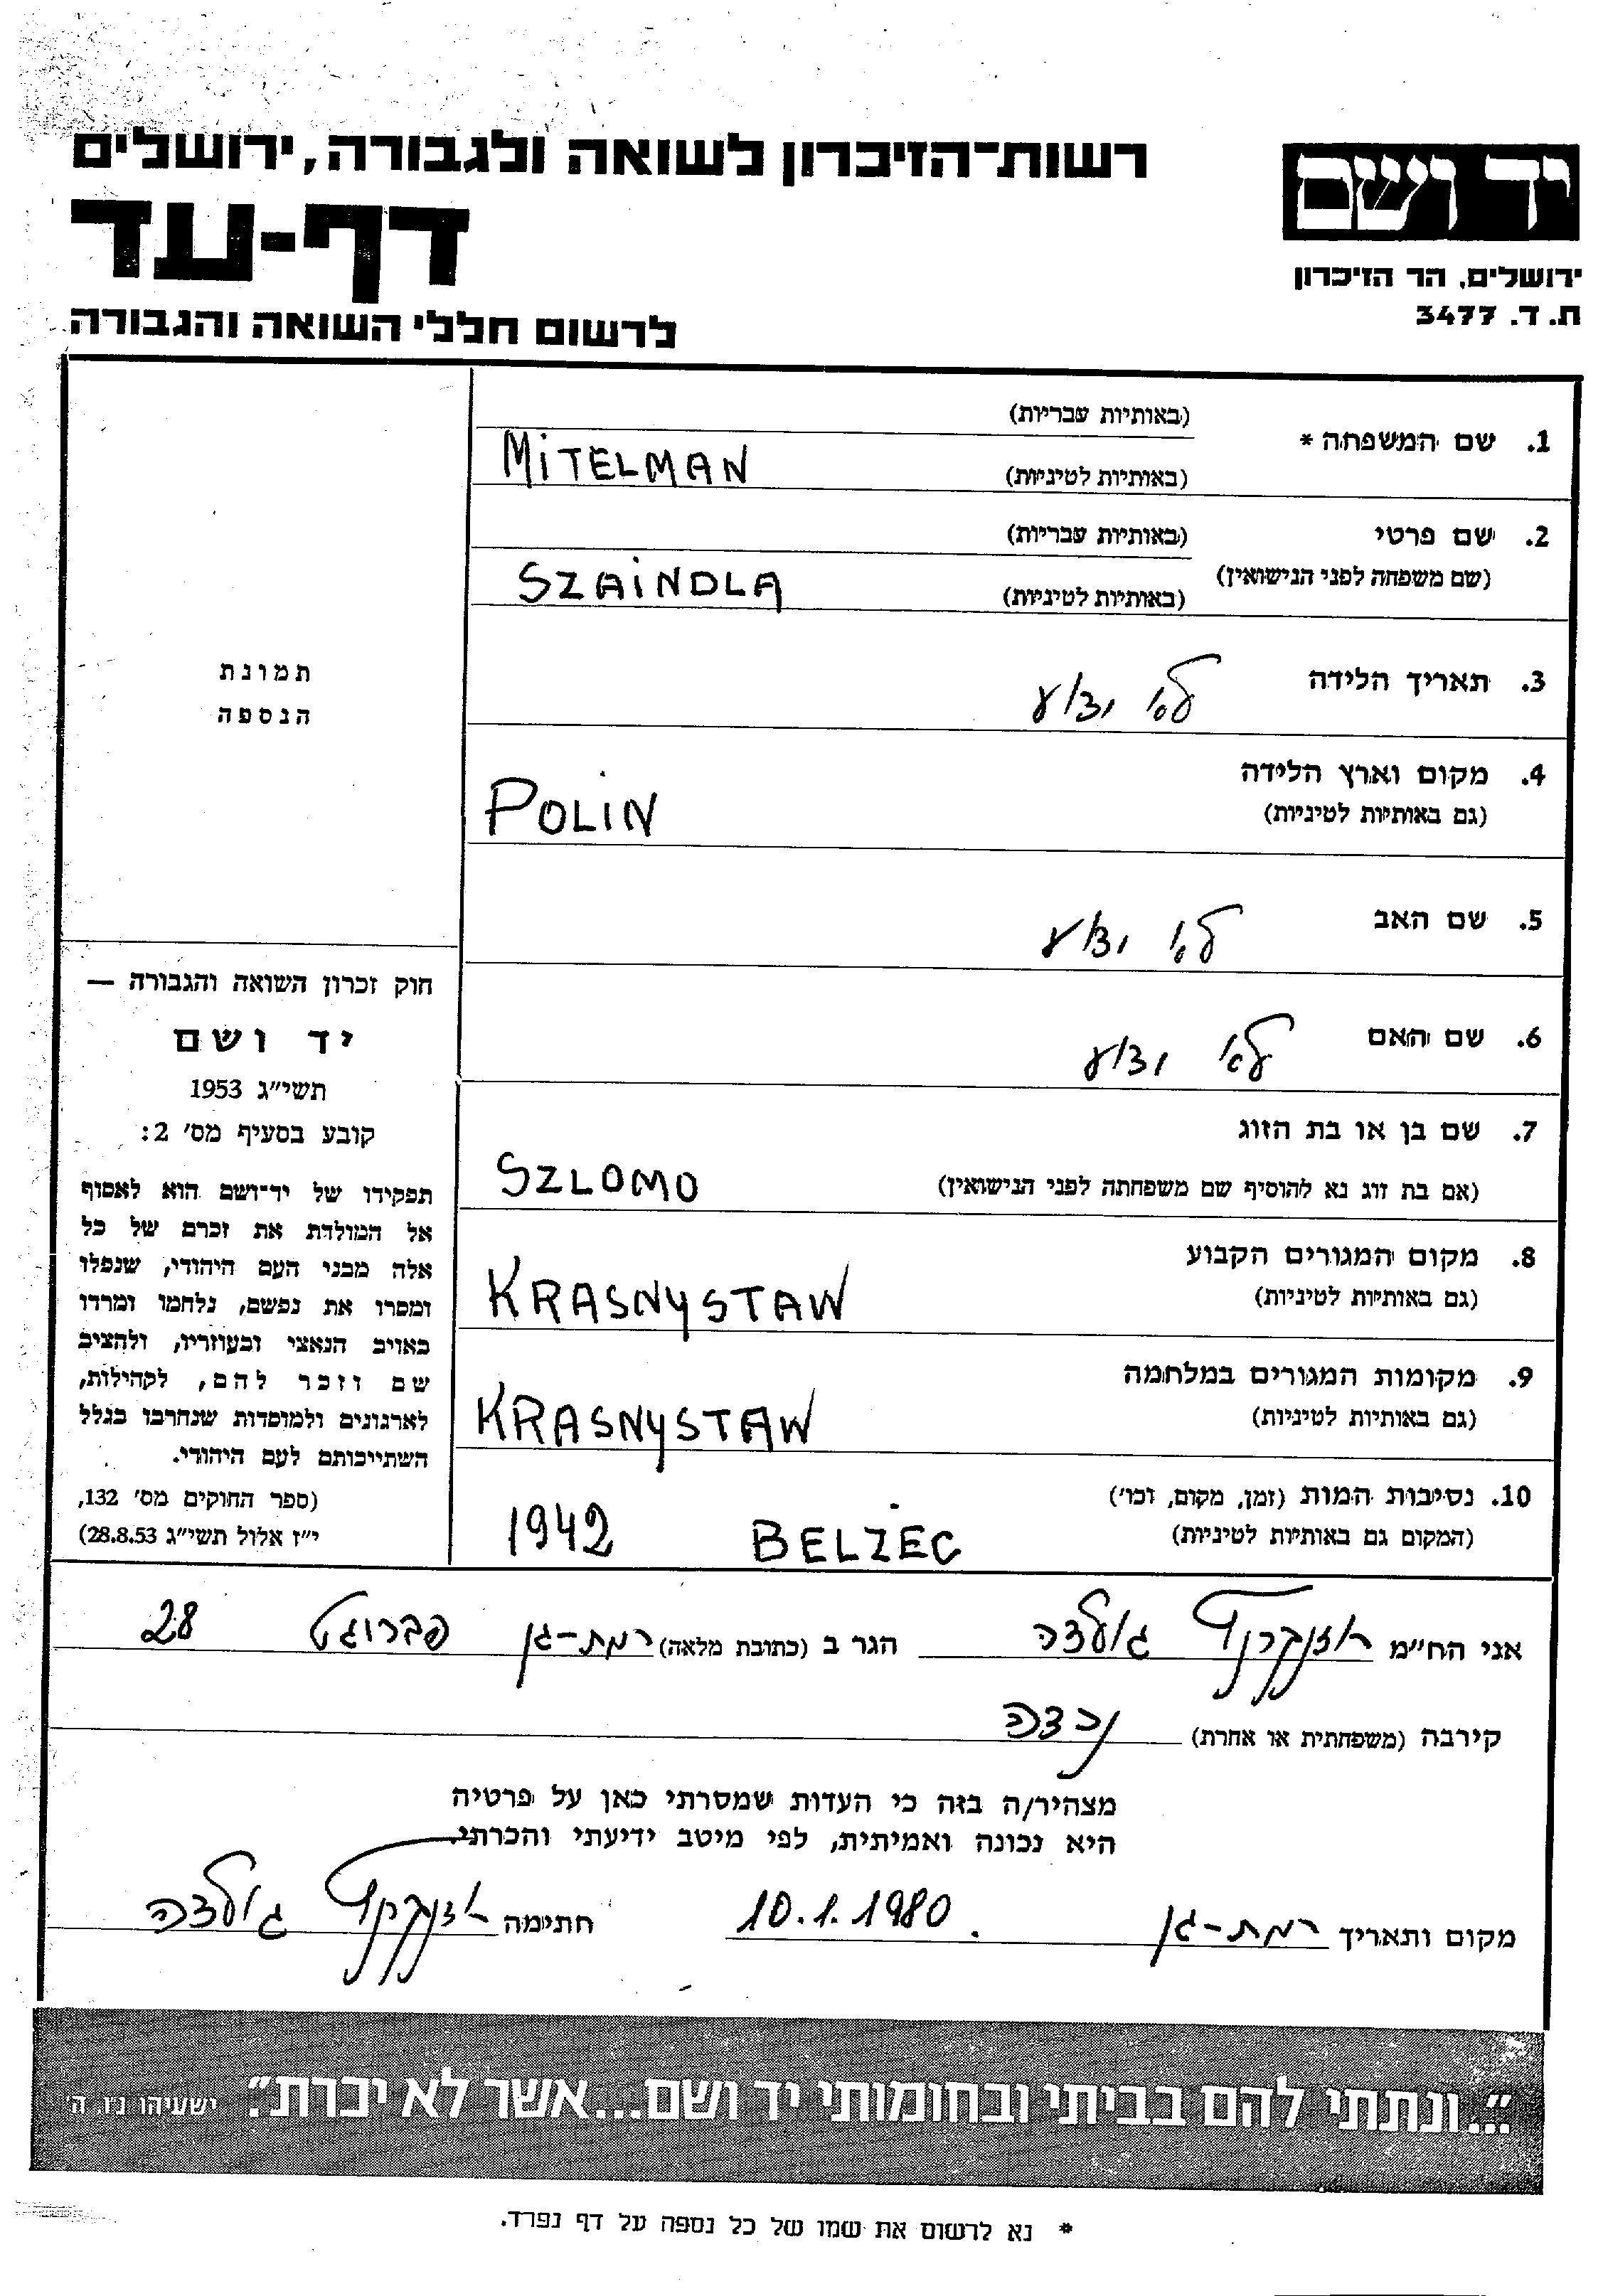 רשות-הזיכרון לשואה ולגבורה, ירושלים
יד ושם
דף-עד
ירושלים, הר הזיכרון
ת. ד. 3477
לרשום חללי השואה והגבורה
1. שם המשפחה * (באותיות עבריות)
(באותיות לטיניות) MiTELMAN
2. שם פרטי (באותיות עבריות)
(שם משפחה לפני הנישואין) (באותיות לטיניות) SZAiNDLA
3. תאריך הלידה לא ידוע
4. מקום וארץ הלידה
(גם באותיות לטיניות) POLiN
5. שם האב לא ידוע
6. שם האם לא ידוע
7. שם בן או בת הזוג
(אם בת זוג נא להוסיף שם משפחתה לפני הנישואין) SZLOMO
8. מקום המגורים הקבוע
(גם באותיות לטיניות) KRASNySTAW
9. מקומות המגורים במלחמה
(גם באותיות לטיניות) KRASNySTAW
10. נסיבות המות (זמן, מקום, וכו')
(המקום גם באותיות לטיניות) BELZEC 1942
תמונת
הנספה
חוק זכרון השואה והגבורה —
יד ושם
תשי"ג 1953
קובע בסעיף מס' 2:
תפקידו של יד-ושם הוא לאסוף
אל המולדת את זכרם של כל
אלה מבני העם היהודי, שנפלו
ומסרו את נפשם, נלחמו ומרדו
באויב הנאצי ובעוזריו, ולהציב
שם וזכר להם, לקהילות,
לארגונים ולמוסדות שנחרבו בגלל
השתייכותם לעם היהודי.
(ספר החוקים מס' 132,
י"ז אלול תשי"ג 28.8.53)
אני הח"מ גולדה הגר ב (כתובת מלאה) רמת-גן 28
קירבה (משפחתית או אחרת) נכדה
מצהיר/ה בזה כי העדות שמסרתי כאן על פרטיה
היא נכונה ואמיתית, לפי מיטב ידיעתי והכרתי.
מקום ותאריך רמת-גן 10.1.1980 חתימה גולדה
"...ונתתי להם בביתי ובחומותי יד ושם...אשר לא יכרת". ישעיהו נ"ו, ה'
* נא לרשום את שמו של כל נספה על דף נפרד.